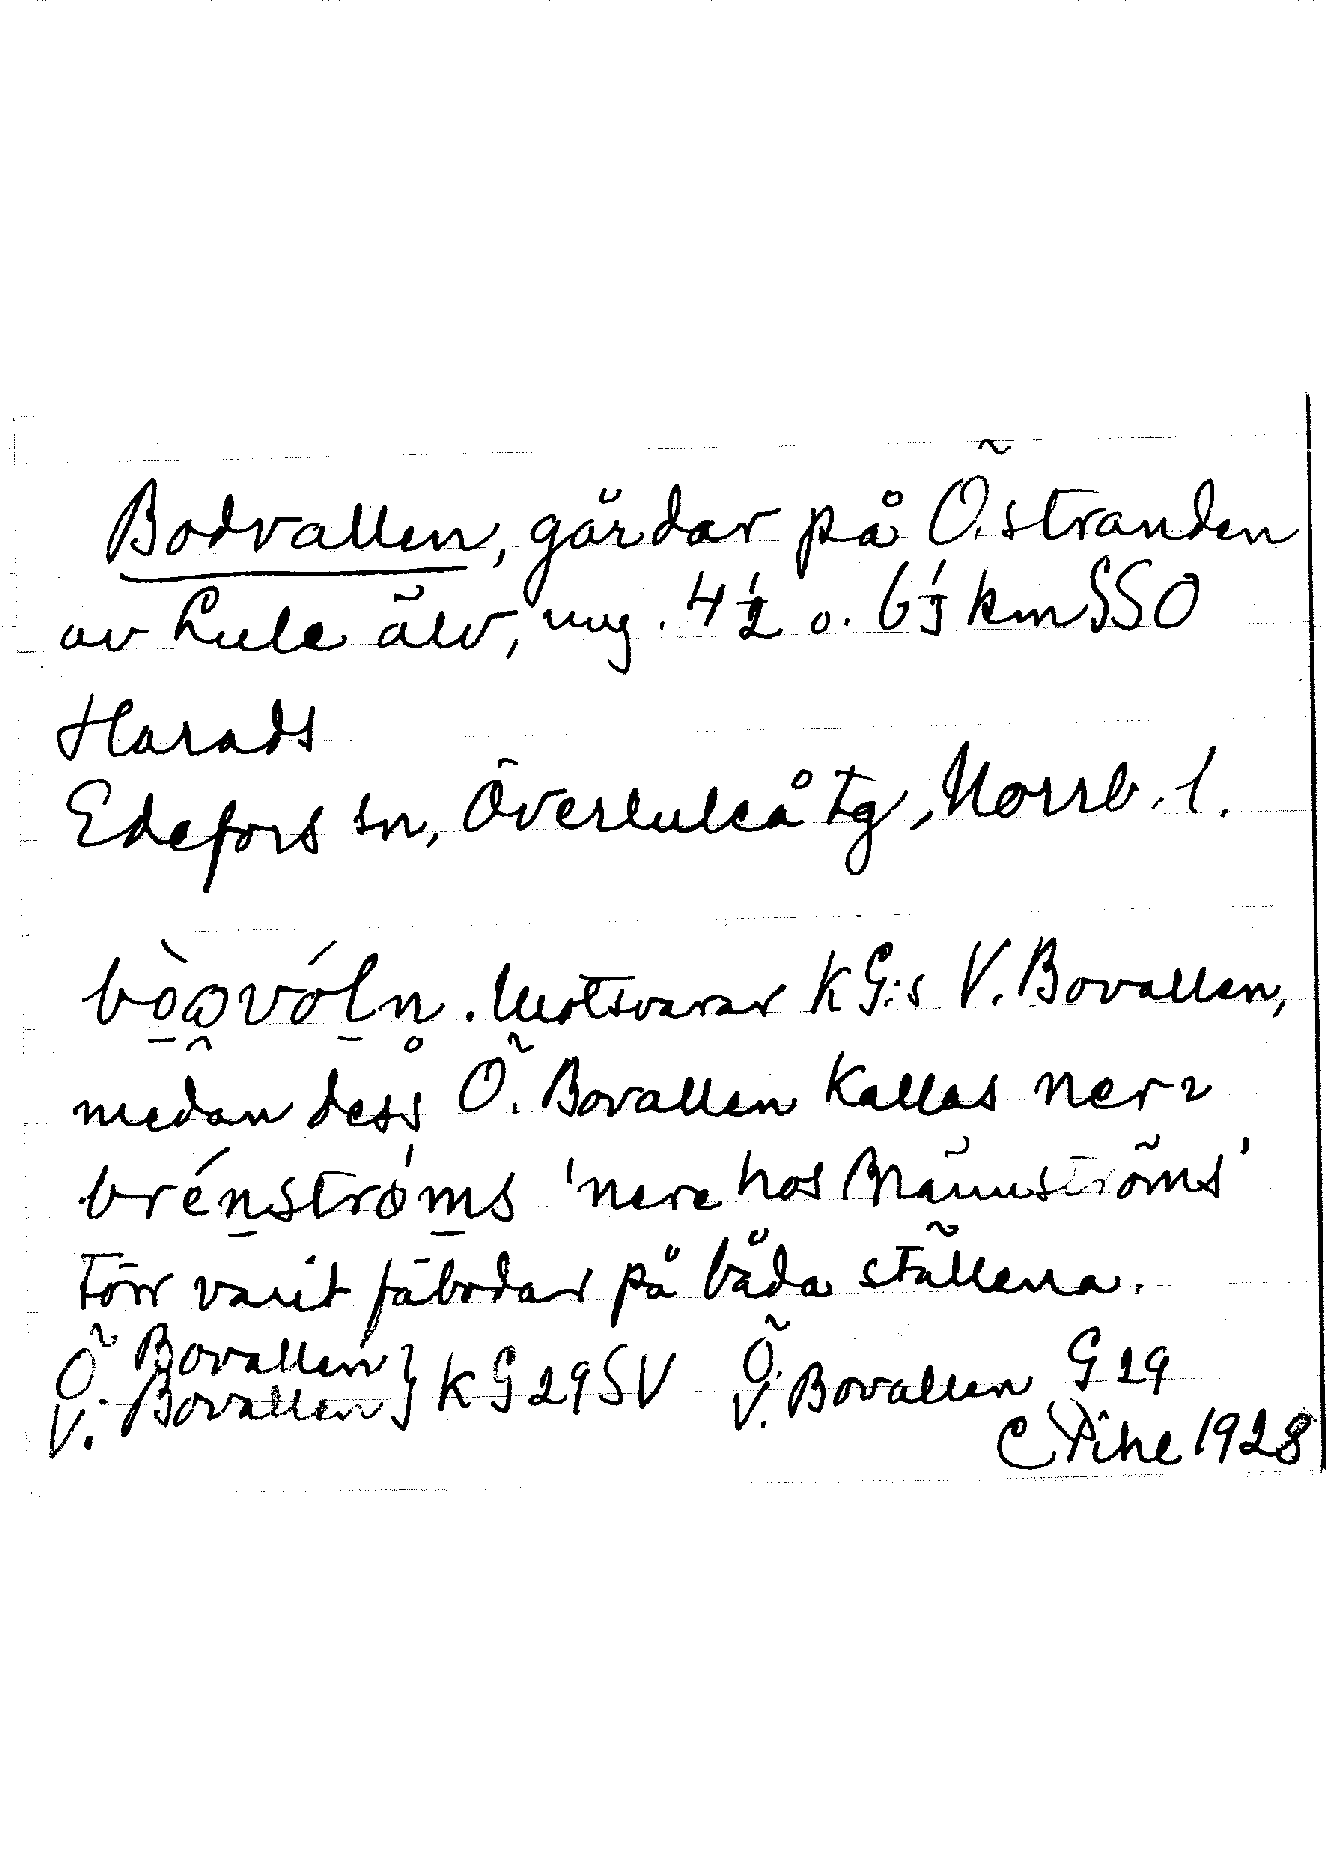 Bodvallen, gårdar på Ö.stranden
av Lule älv, ung. 4 1/2 o. 6 1/3 km SSO
Harads
Edefors sn, Överluleå tg, Norrb. l.
bò̱ω̯vó̱ln. Motsvarar KG:s V. Bovallen,
medan dess Ö. Bovallen kallas ner
brén̠strøm̠s 'nere hos Brännströms'
Förr varit fäbodar på båda ställena.
Ö Bovallen
V. Bovallen } KG 29 SV Ö. V. Bovallen G 29
C Pihl 1928